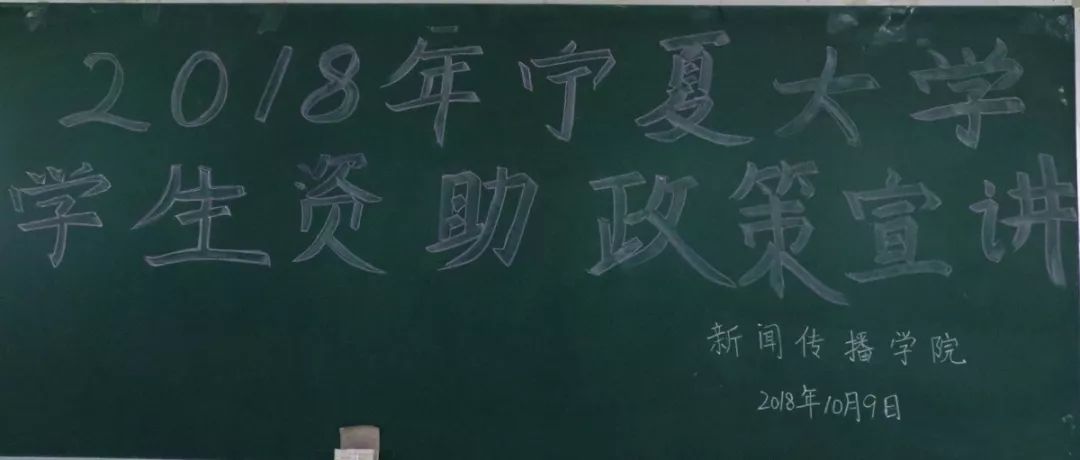 2018年宁夏大学
学生资助政策宣讲
新闻传播学院
2018年10月9日